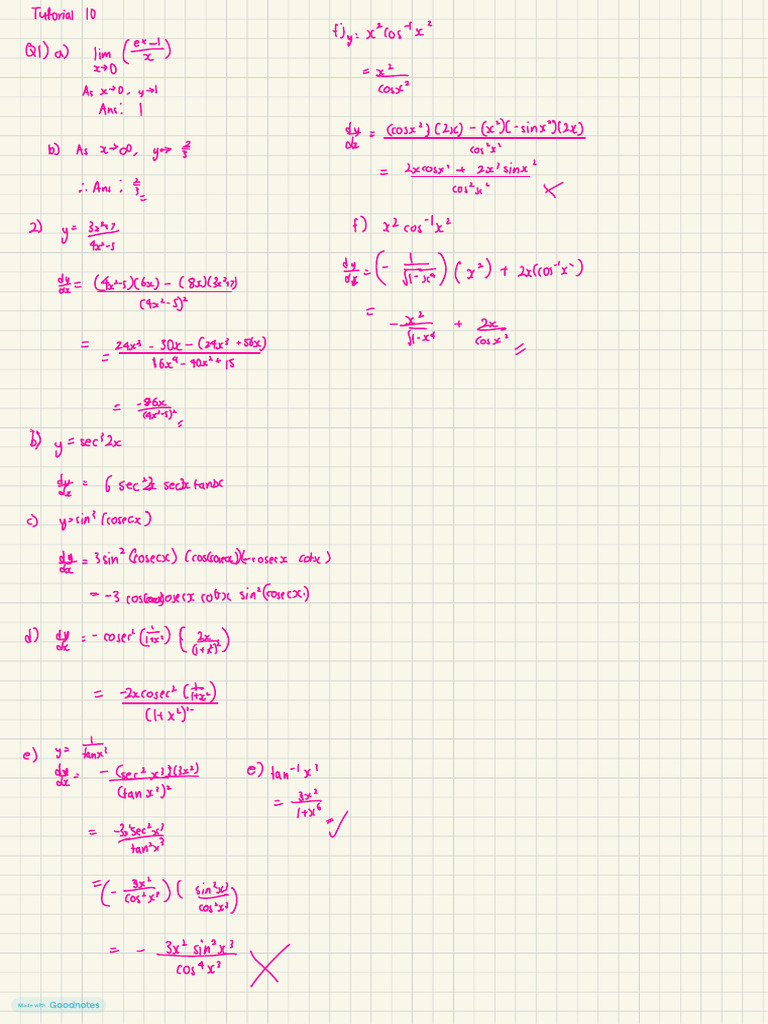 Tutorial 10
Q1) a) lim x→0 (eˣ-1/x)
As x→0, y→1
Ans: 1
b) As x→∞, y→ 2/3
∴ Ans: 2/3
2) y = 3x²+7/4x²-5
dy/dx = (4x²-5)(6x) - (8x)(3x²+7)/(4x²-5)²
= = 24x³ - 30x - (24x³ + 56x)/16x⁴ - 40x² + 15
= -86x/(4x²-5)²
b) y = sec³2x
dy/dx = 6 sec²2x sec2x tan2x
c) y = sin³(cosecx)
dy/dx = 3sin²(cosecx) (cos(cosecx))(-cosecx cotx)
= -3 cos(cosecx)cosecx cotx sin²(cosecx)
d) dy/dx = - cosec² (1/1+x²) (2x/(1+x²)²)
= -2x cosec² (1/1+x²)/(1+x²)²
e) y = 1/tanx³
dy/dx = - (sec²x³)(3x²)/(tanx³)²
= -3x²sec²x³/tan²x³
= (- 3x²/cos²x³) (sin²x³/cos²x³)
= - 3x² sin²x³/cos⁴x³
e) tan⁻¹x³
= 3x²/1+x⁶
f) y = x²cos⁻¹x²
= x²/cosx²
dy/dx = (cosx²)(2x) - (x²)(-sinx²)(2x)/cos²x²
= 2xcosx² + 2x³sinx²/cos²x²
f) x²cos⁻¹x²
dy/dx = (- 1/√1-x⁴) (x²) + 2x(cos⁻¹x²)
= - x²/√1-x⁴ + 2x/cosx²
Made with Goodnotes